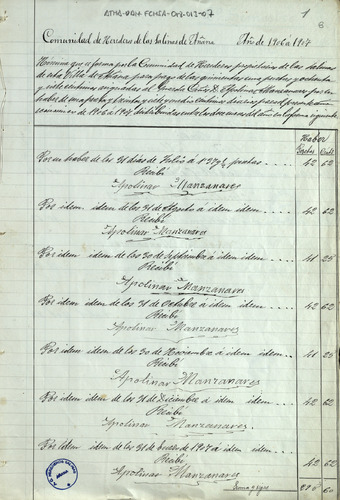 ATHA-DAH-FCHSA-017-013-07
1
8
Comunidad de Herederos de las Salinas de Añana Año de 1906 á 1907
Nómina que se forma por la Comunidad de Herederos propietarios de las Salinas
de esta Villa de Añana, para pago de las quinientas pesetas y
siete céntimos asignadas al Guarda D. Apolinar Manzanares por su
haber de una peseta y treinta y siete y medio céntimos
económico de 1906 á 1907 distribuidas en los doce meses del año en la forma siguiente
Haber
Pesetas Cénts
Por su haber de los 31 dias de Julio á 1'37½ pesetas 42 62
Recibí
Apolinar Manzanares
Por idem idem de los 31 de Agosto á idem idem 42 62
Recibí
Apolinar Manzanares
Por idem idem de los 30 de Septiembre á idem idem 41 25
Recibí
Apolinar Manzanares
Por idem idem de los 31 de Octubre á idem idem 42 62
Recibí
Apolinar Manzanares
Por idem idem de los 30 de Noviembre á idem idem 41 25
Recibí
Apolinar Manzanares
Por idem idem de los 31 de Diciembre á idem idem 42 62
Recibí
Apolinar Manzanares
Por idem idem de los 31 de Enero de 1907 á idem idem 42 62
Recibí
Apolinar Manzanares
Suma y sigue